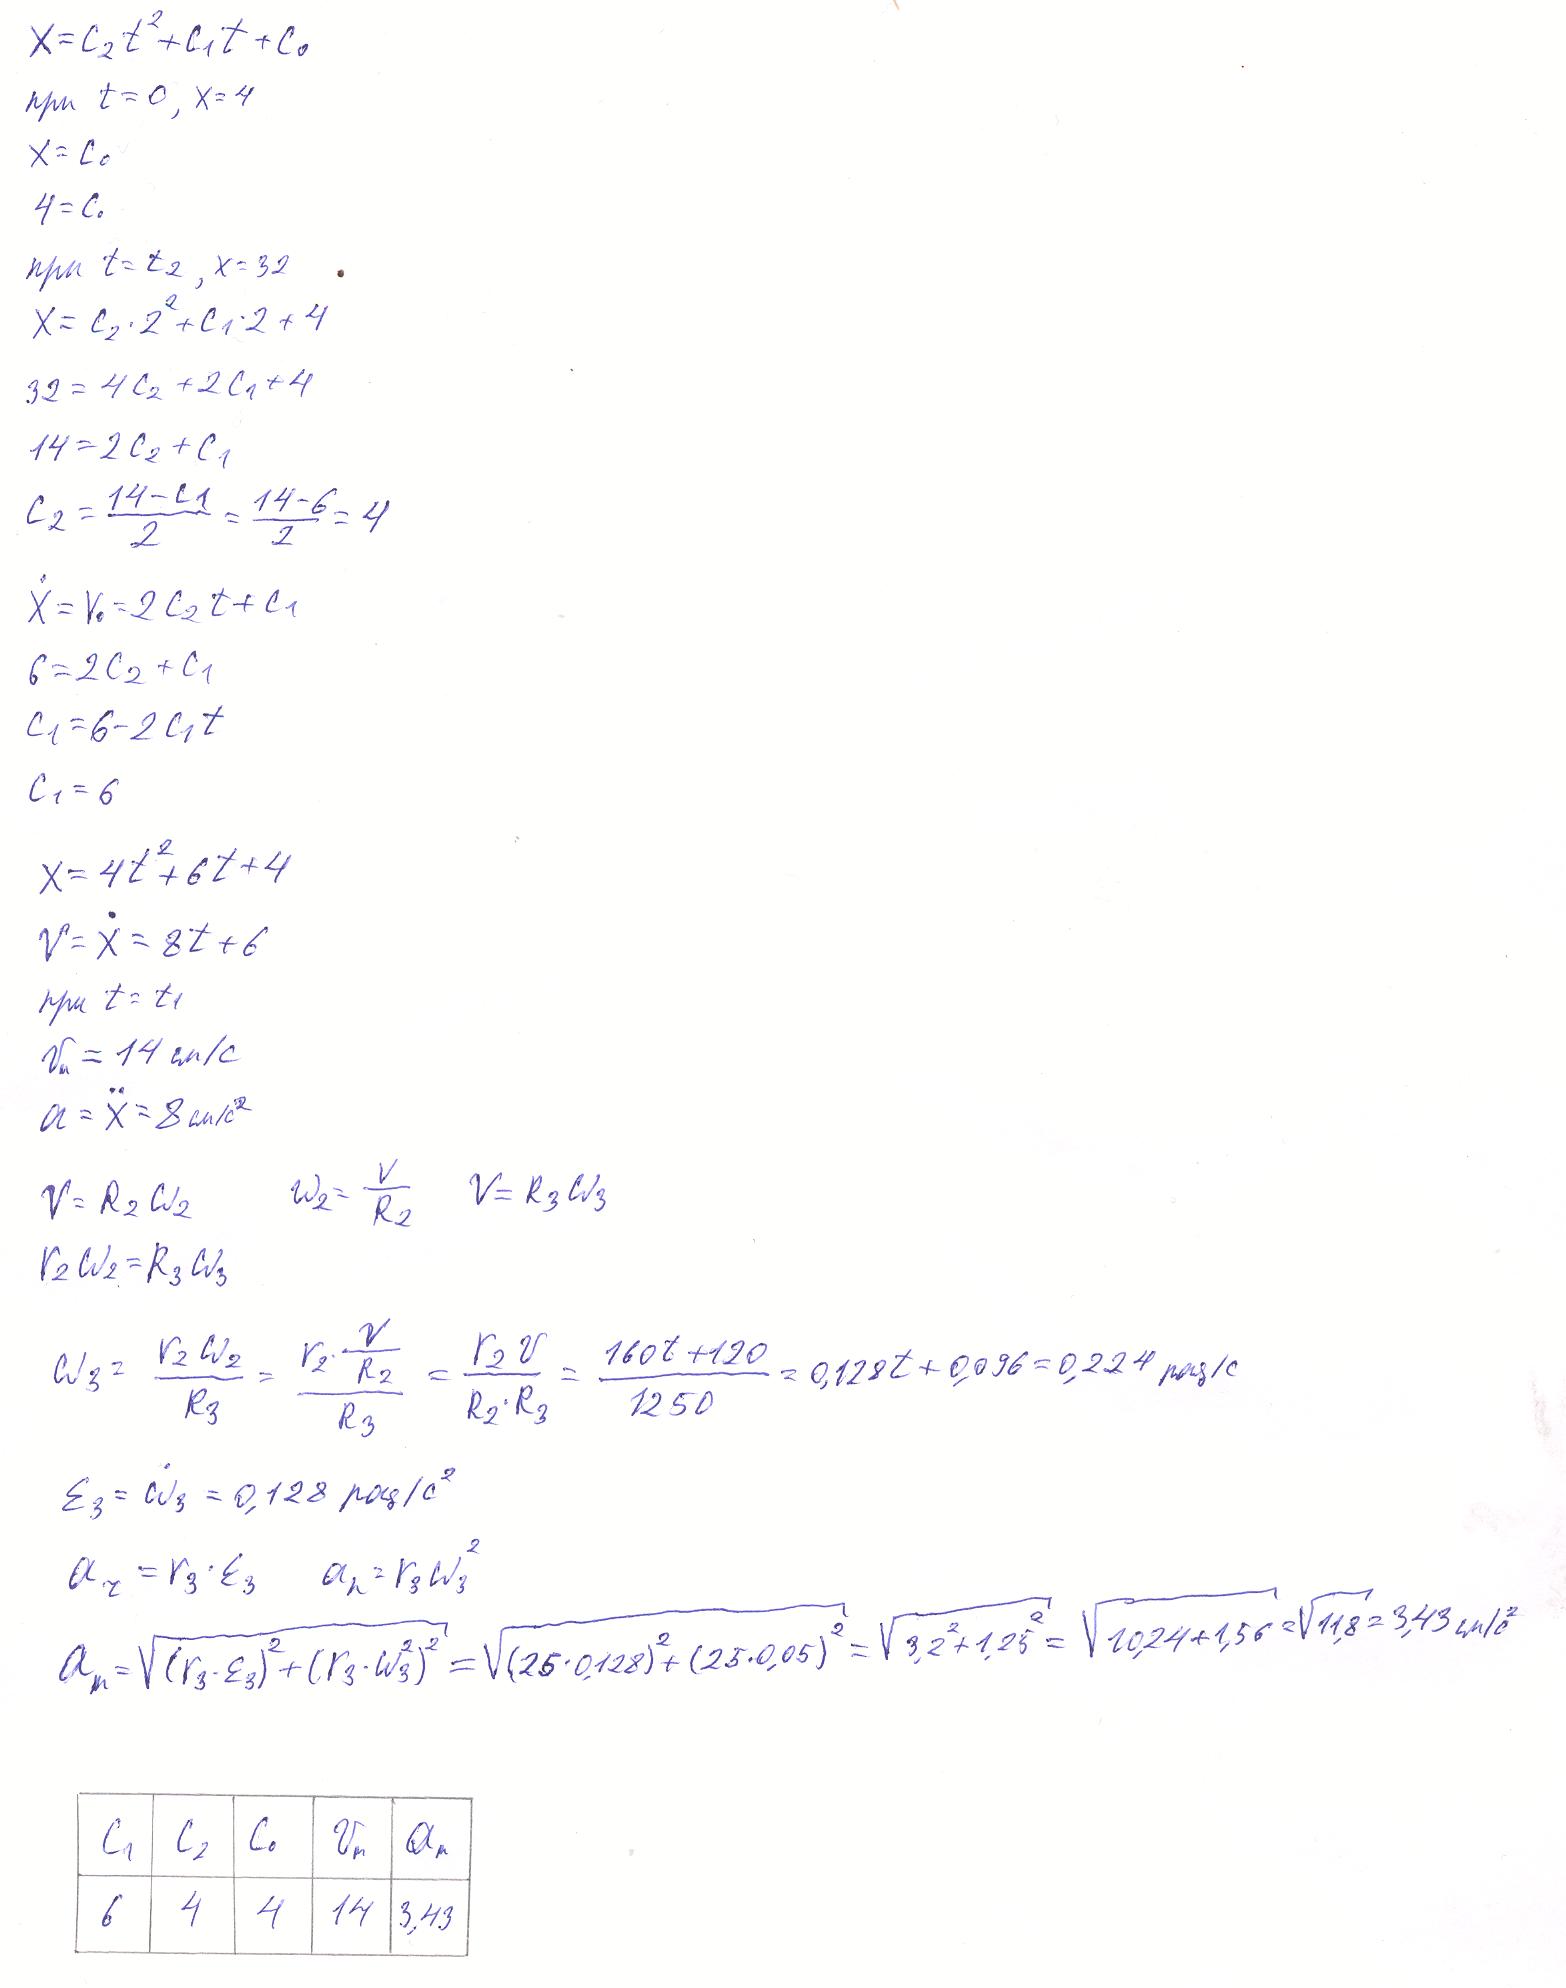 X=C₂t²+C₁t+C₀
при t=0, x=4
X=C₀
4=C₀
при t=t₂, x=32
X=C₂·2²+C₁·2+4
32=4C₂+2C₁+4
14=2C₂+C₁
C₂=(14-C₁)/2=(14-6)/2=4
Ẋ=V₀=2C₂t+C₁
6=2C₂+C₁
C₁=6-2C₁t
C₁=6
X=4t²+6t+4
V=ẋ=8t+6
при t=t₁
Vₘ=14 см/с
a=ẍ=8 см/с²
V=R₂ω₂ ω₂=V/R₂ V=R₃ω₃
r₂ω₂=R₃ω₃
ω₃=r₂ω₂/R₃=(r₂·V/R₂)/R₃=r₂V/(R₂·R₃)=(160t+120)/1250=0,128t+0,096=0,224 рад/с
ε₃=ω̇₃=0,128 рад/с²
a_τ=r₃·ε₃ aₙ=r₃ω₃²
aₘ=√((r₃·ε₃)²+(r₃·ω₃²)²)=√((25·0,128)²+(25·0,05)²)=√(3,2²+1,25²)=√(10,24+1,56)=√11,8=3,43 см/с²
C₁ C₂ C₀ Vₘ aₘ
6 4 4 14 3,43